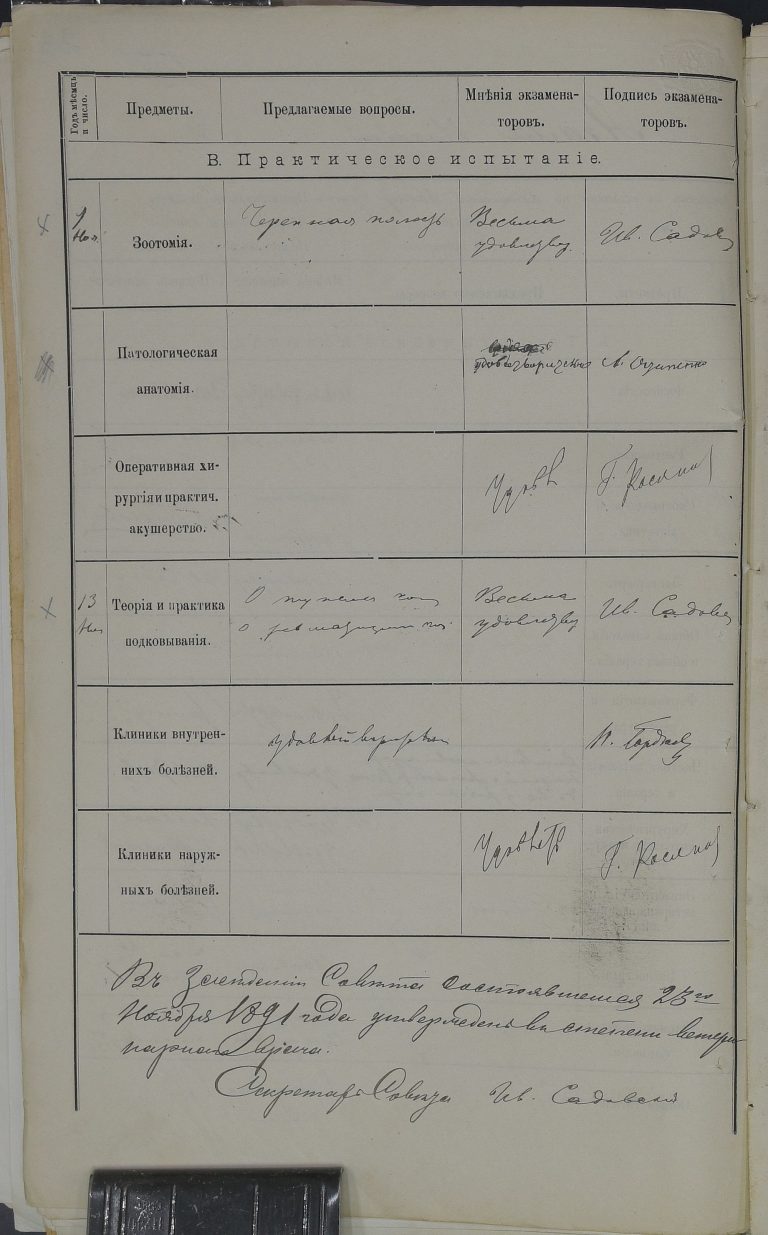 Годъ мѣсяцъ
и число.
Предметы.
Предлагаемые вопросы.
Мнѣнія экзамена-
торовъ.
Подпись экзамена-
торовъ.
В. Практическое испытаніе.
1
Ноя
Зоотомія.
Черепная полость
Весьма
удовлетву
Ив. Садовс
Патологическая
анатомія.
удовлетворительно
Оперативная хи-
рургія и практич.
акушерство.
Удовл
Г.
13
Ноя
Теорія и практика
подковыванія.
О
О
Весьма
удовлетву
Ив. Садовск
Клиники внутрен-
нихъ болѣзней.
удовлетворительно
Клиники наруж-
ныхъ болѣзней.
Удовлетв
Г.
Въ Засѣданіи Совѣта состоявшемся 23го
Ноября 1891 года утвержденъ въ степени ветери-
нарнаго врача.
Секретарь Совѣта Ив. Садовскій